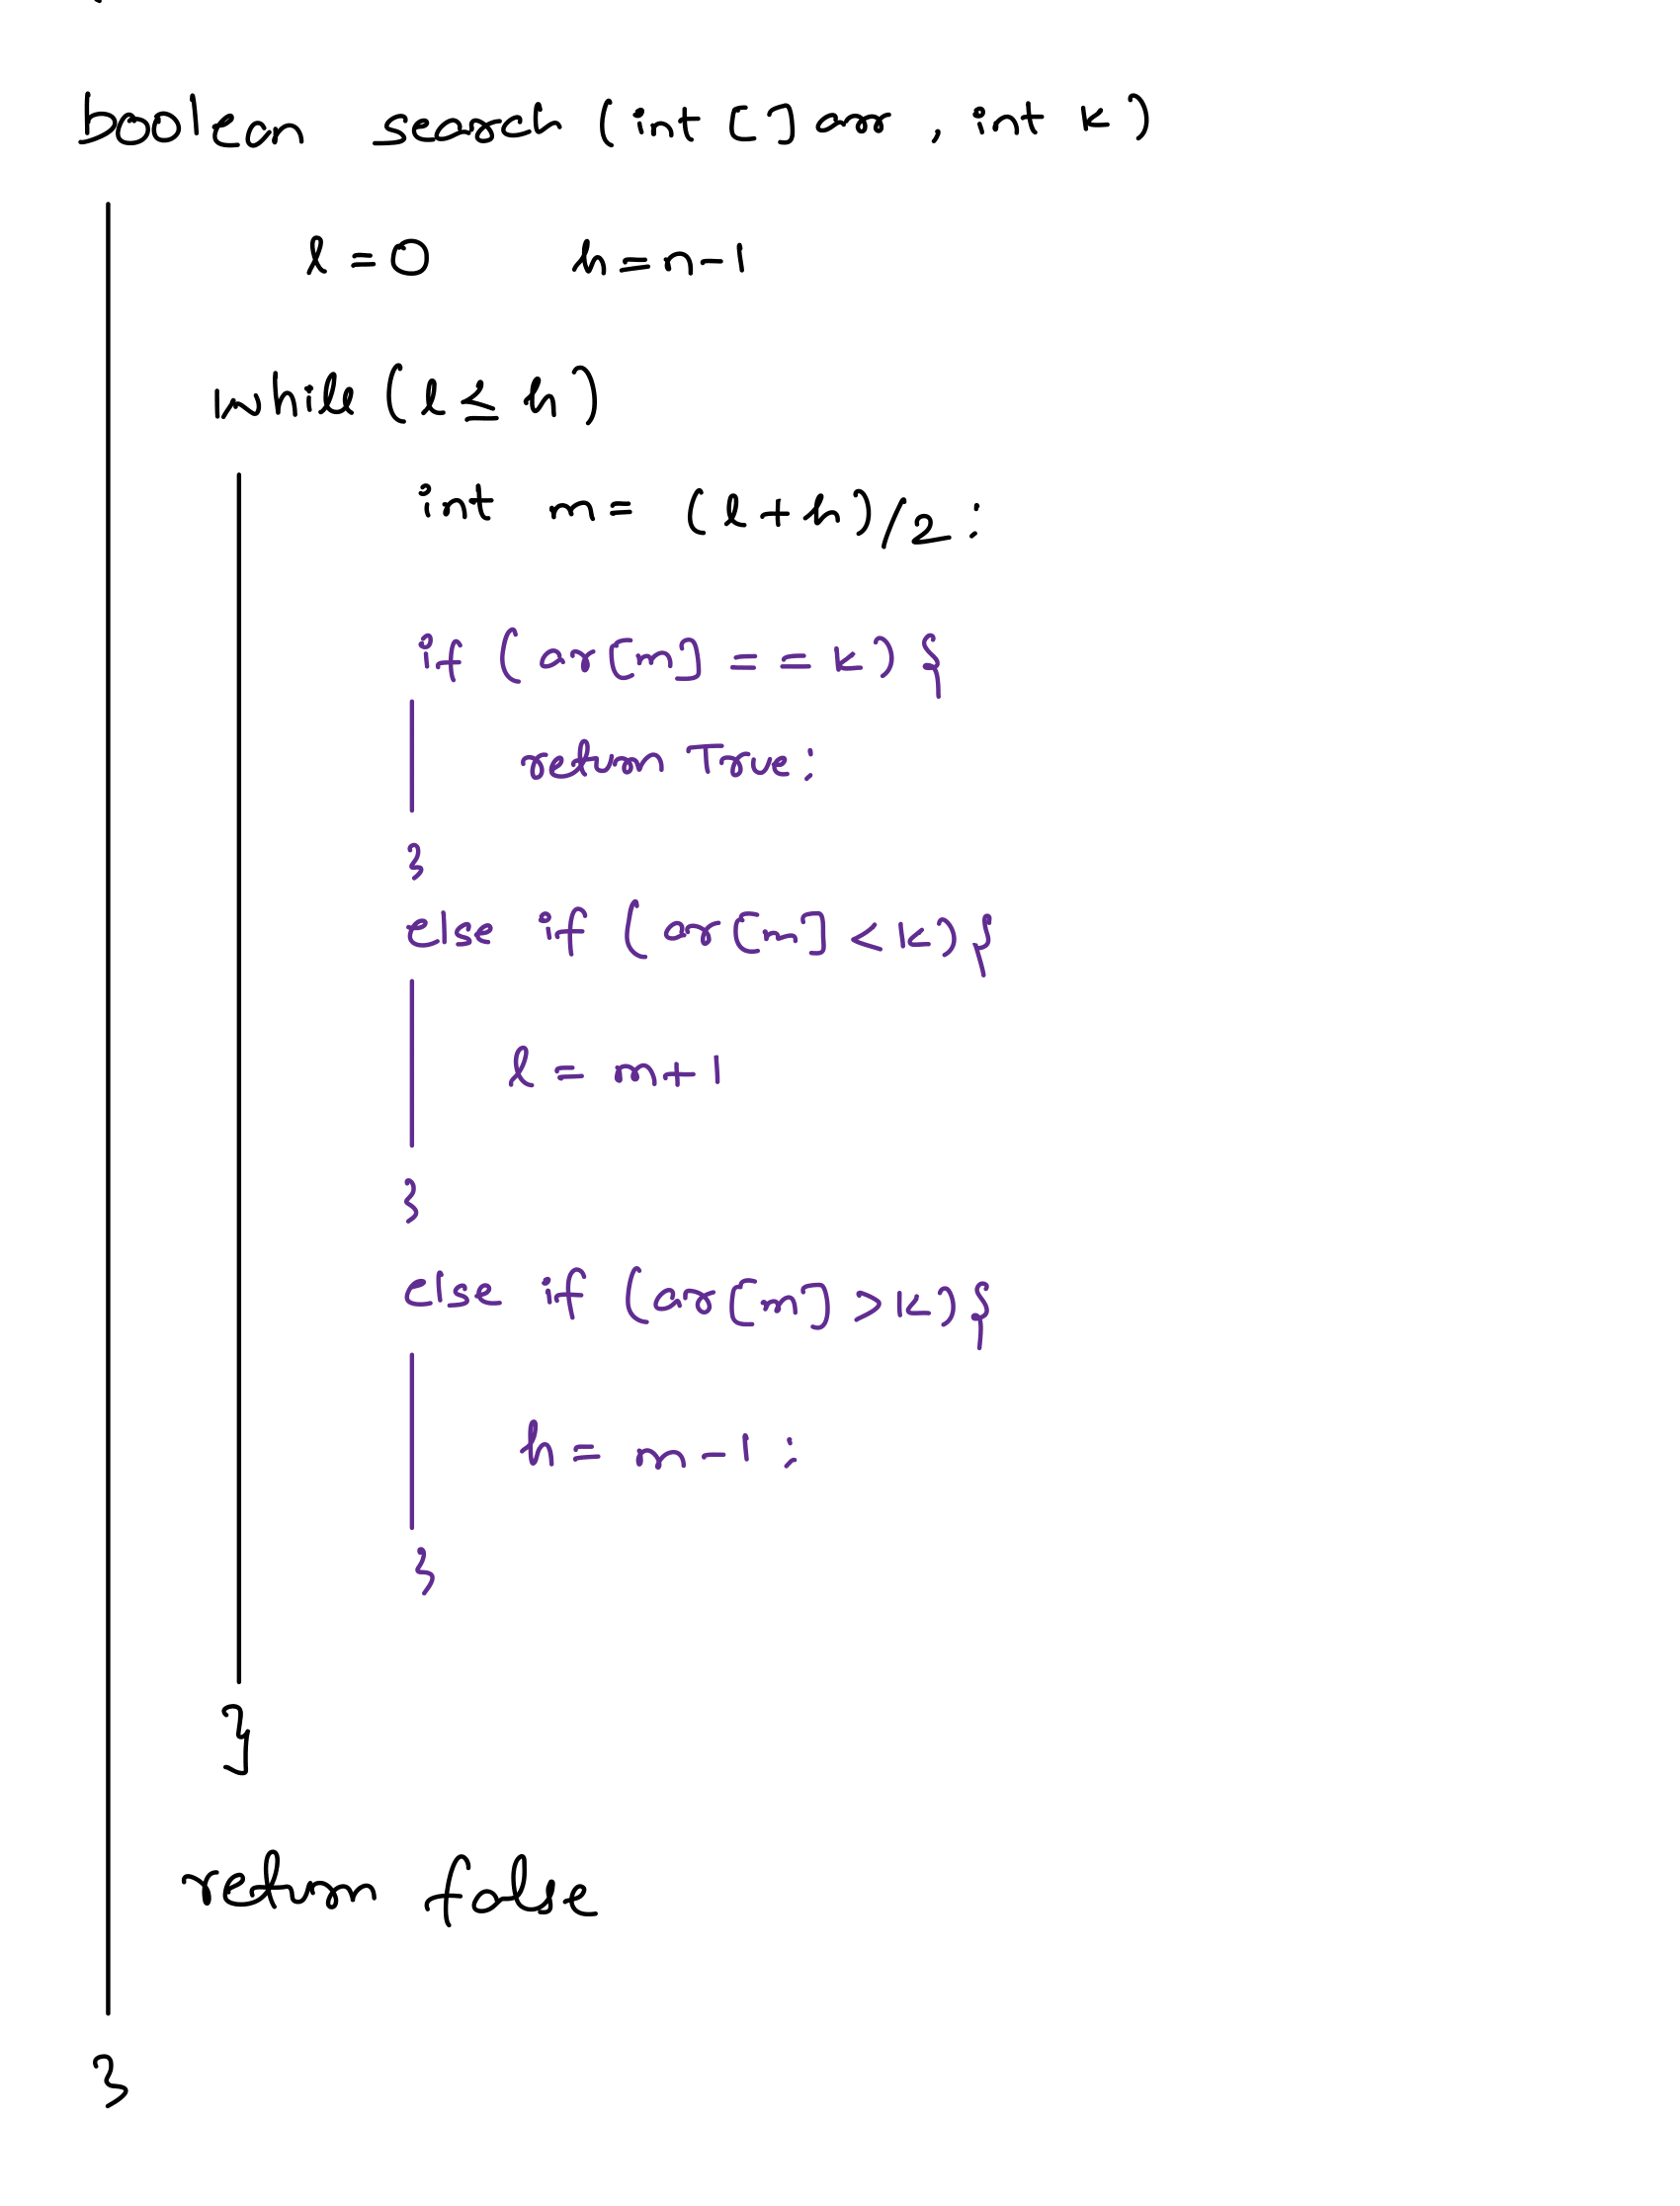 boolean search (int [] arr, int k)
l = 0 h = n-1
while (l ≤ h)
int m = (l+h)/2;
if (ar[m] == k) {
return True;
}
else if (ar[m] < k) {
l = m+1
}
else if (ar[m] > k) {
h = m-1;
}
}
return false
}